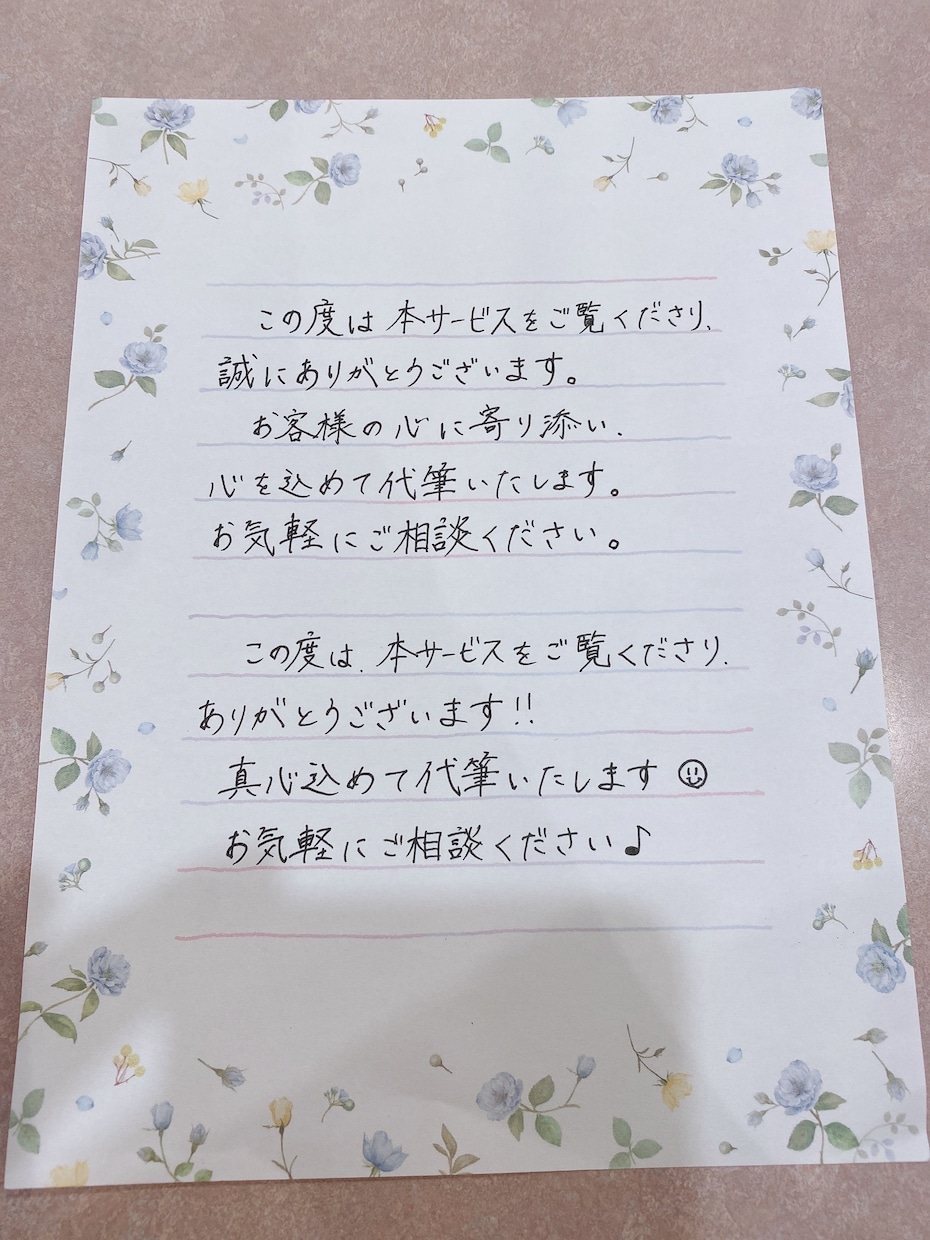 この度は本サービスをご覧くださり、
誠にありがとうございます。
お客様の心に寄り添い、
心を込めて代筆いたします。
お気軽にご相談ください。
この度は、本サービスをご覧くださり、
ありがとうございます!!
真心込めて代筆いたします☺
お気軽にご相談ください♪